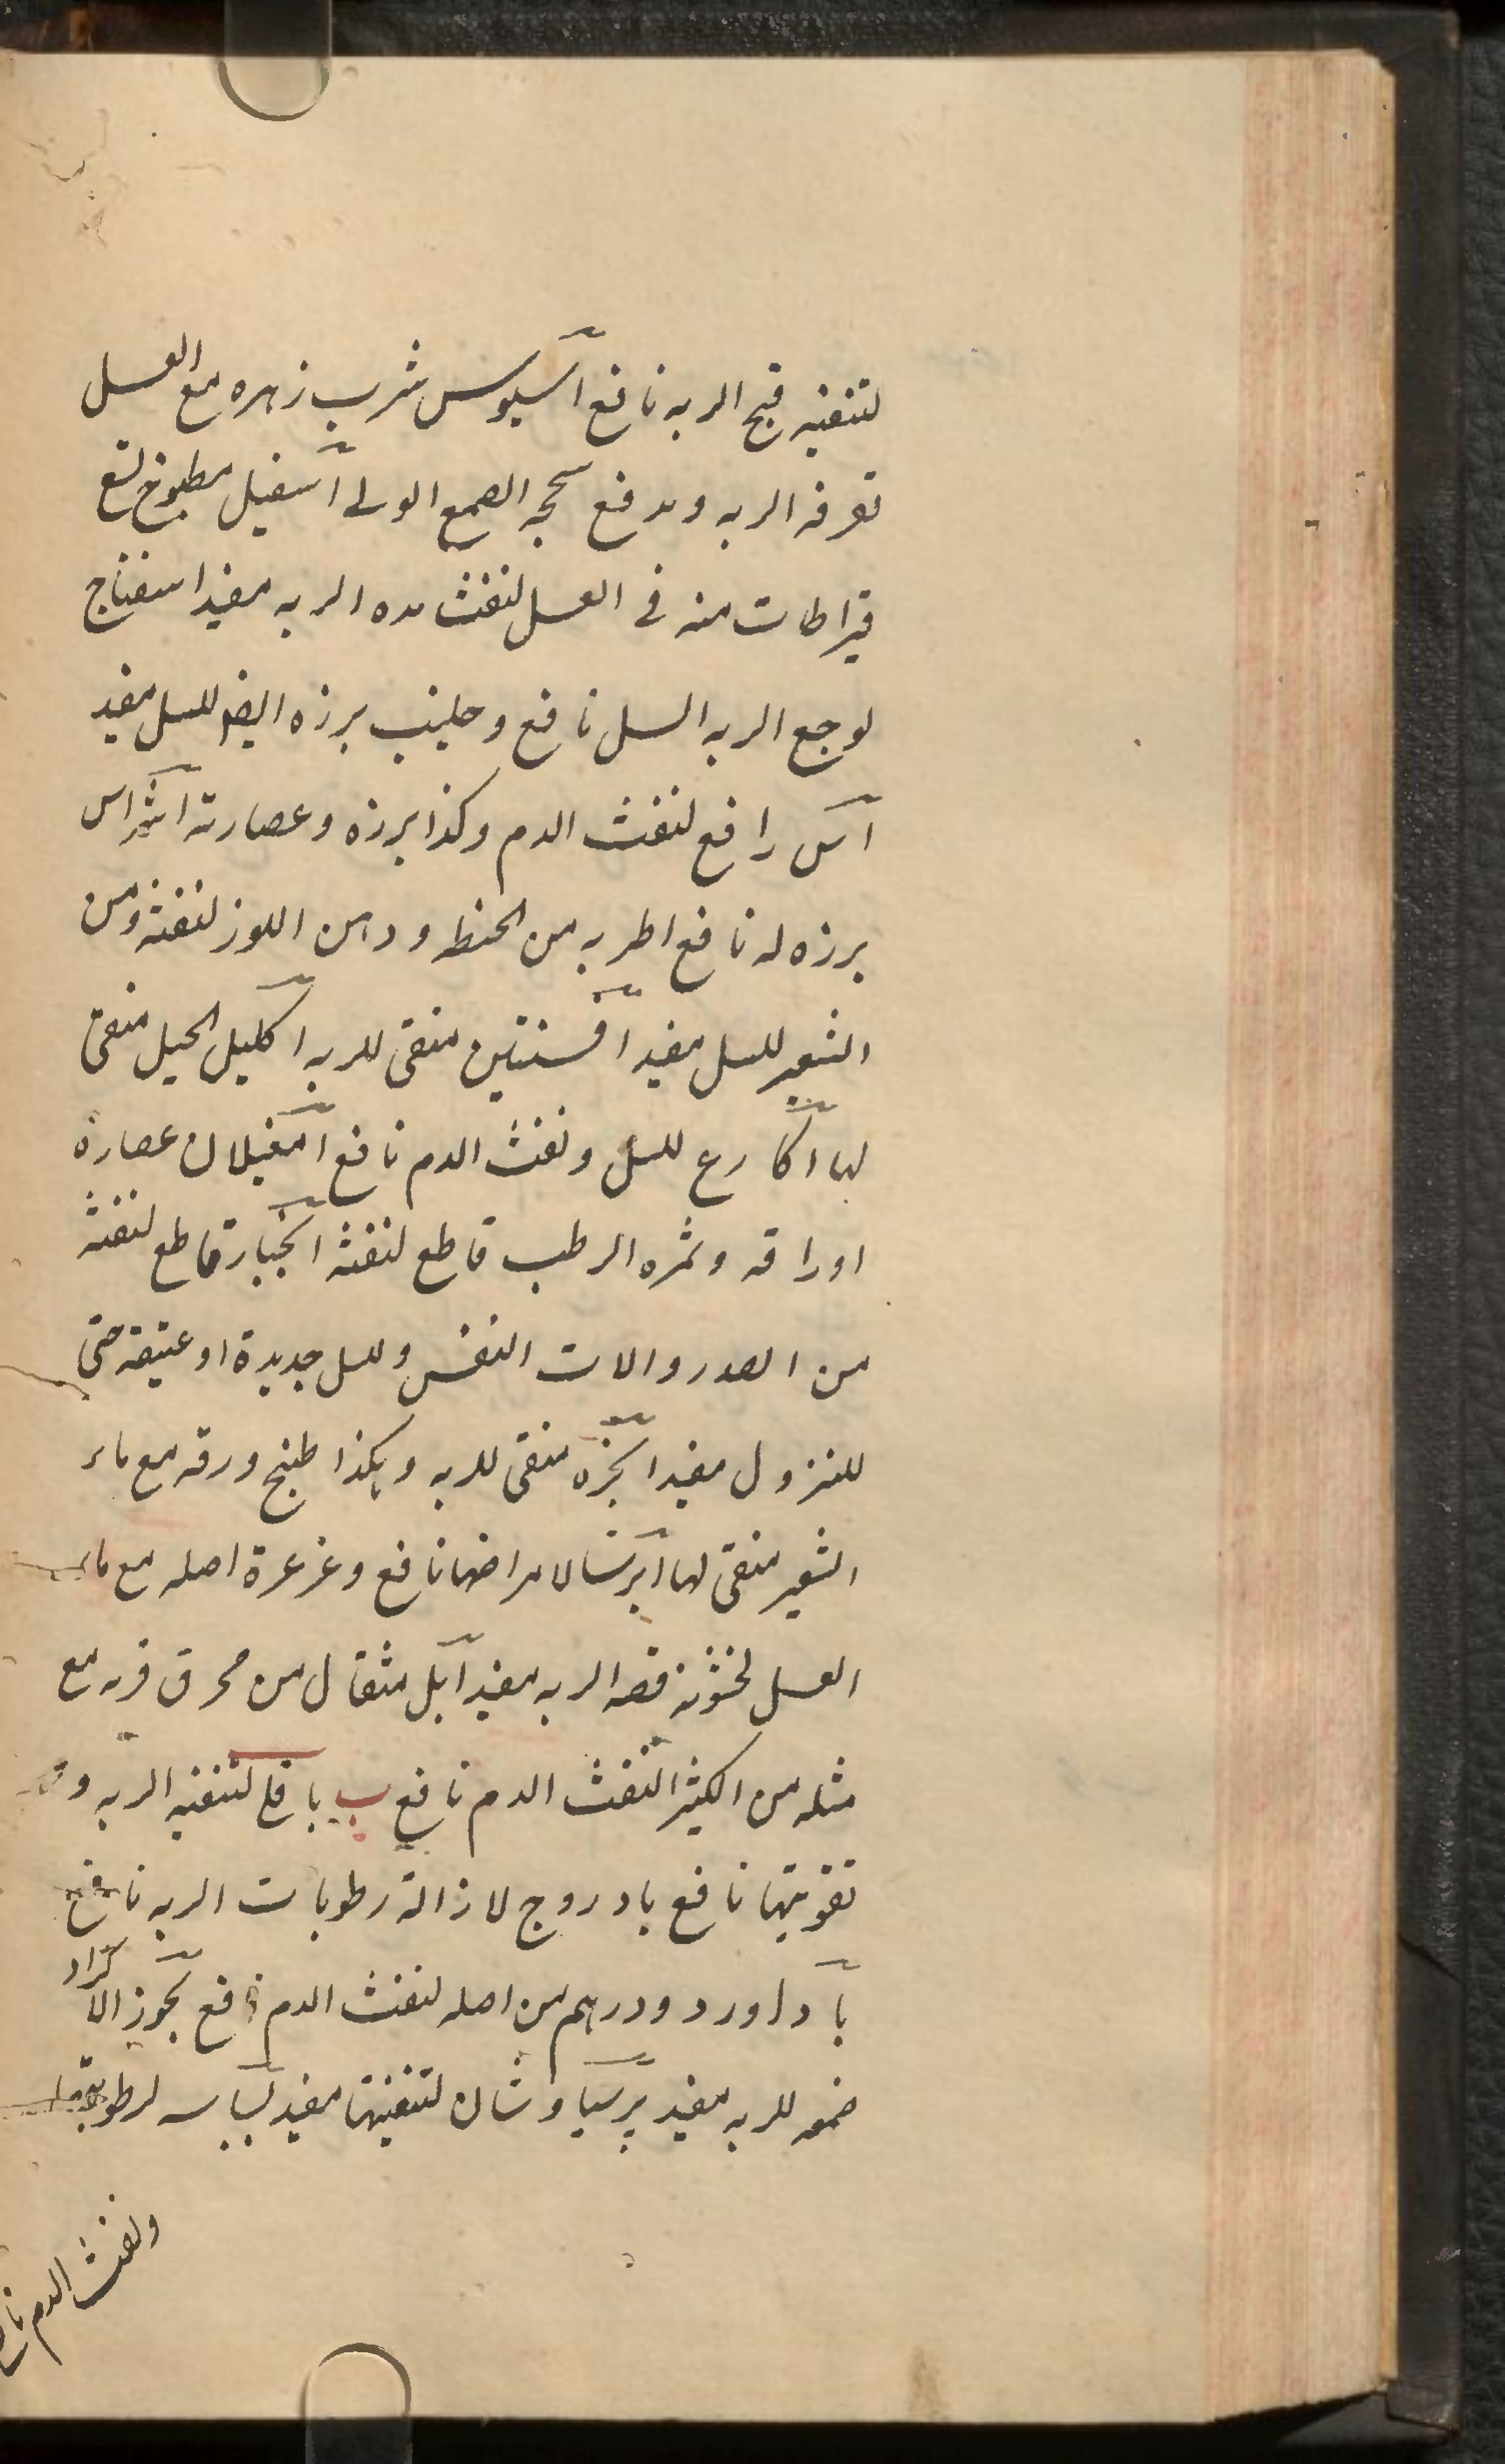 لتنقیه قیح الریه نافع اسیوس شرب زهره مع العسل
تقرفه الریه و مدفع سحجه الصمغ الولی اسقیل مطبوخ تسع
قیراطات منه فی العسل لنفث مده الریه مفید اسفناج
لوجع الریه السل نافع وحلیب برزه ایضا للسل مفید
اس رافع لنفث الدم وکذا برزه وعصارته اشراس
برزه له نافع اطریه من الحنطه ودهن اللوز لنفثه ومن
الشعیر للسل مفید افسنتین منقی للریه اکلیل الجبل منقی
لها اکارع للسل ونفث الدم نافع امغیلان عصارة
اوراقه وثمره الرطب قاطع لنفثه انجبار قاطع لنفثه
من الصدر والات النفس وللسل جدیدة او عتیقه حتی
للنزول مفید انجره منقی للریه وهکذا طبخ ورقه مع ماء
الشعیر منقی لها ایرسا لامراضها نافع وغرغرة اصله مع ماء
العسل لخشونه قصه الریه مفید ایل مثقال من محرق قرنه مع
مثله من الکثیرا لنفث الدم نافع ب باقلی لتنقیه الریه و
تقویتها نافع بادروج لازالة رطوبات الریه نافع
باداورد ودرهم من اصله لنفث الدم نافع بخور الاکراد
ضمغه للریه مفید پرسیاوشان لتنقیتها مفید بسباسه لرطوبتها
ونفث الدم